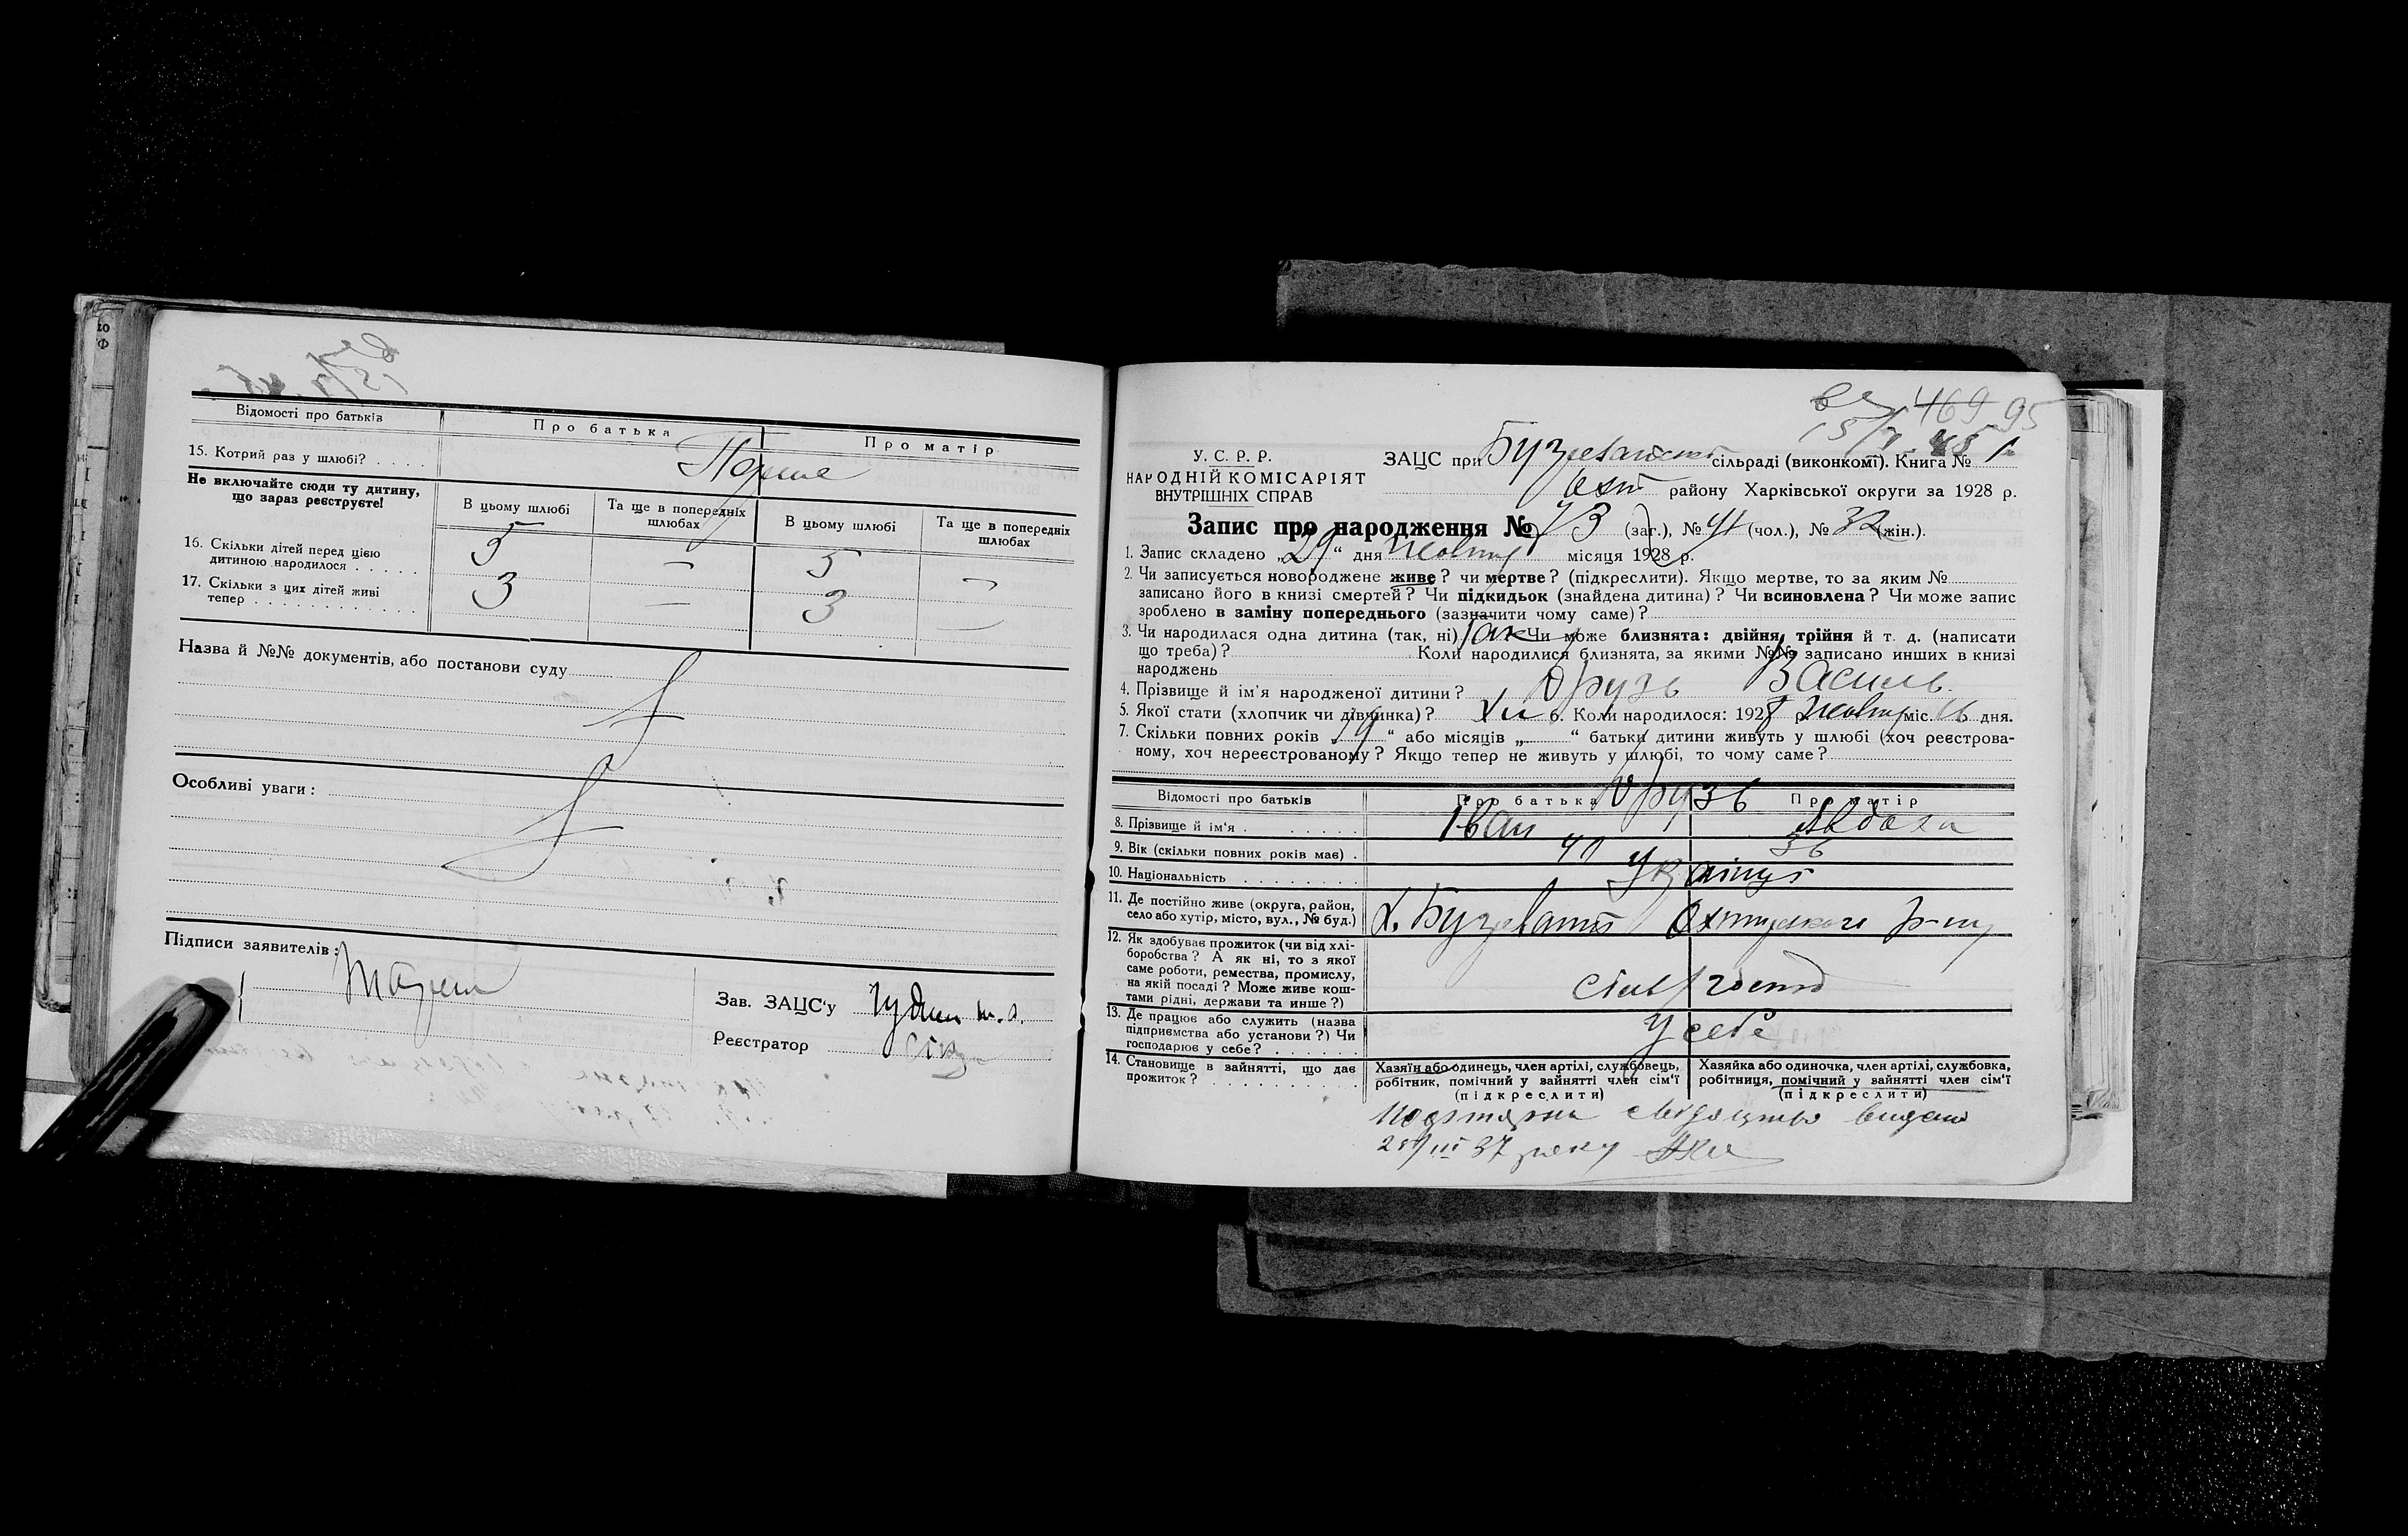 Відомості про батьків
Про батька
Про матір
15. Котрий раз у шлюбі? . . . .
Перше
Не включайте сюди ту дитину,
що зараз реєструєте!
В цьому шлюбі
Та ще в попередніх
шлюбах
В цьому шлюбі
Та ще в попередніх
шлюбах
16. Скільки дітей перед цією
дитиною народилося . . . . .
5 — 5 —
17. Скільки з цих дітей живі
тепер . . . . . . . . . . . .
3 — 3 —
Назва й №№ документів, або постанови суду
Особливі уваги:
Підписи заявителів:
Зав. ЗАЦС'у
Реєстратор
469 95
У. С. Р. Р.
НАРОДНІЙ КОМІСАРІЯТ
ВНУТРІШНІХ СПРАВ
ЗАЦС при сільраді (виконкомі). Книга № 1
Охт району Харківської округи за 1928 р.
Запис про народження № 73 (заг.), № 41 (чол.), № 32 (жін.).
1. Запис складено „29“ дня Жовтн місяця 1928 р.
2. Чи записується новороджене живе? чи мертве? (підкреслити). Якщо мертве, то за яким №
записано його в книзі смертей? Чи підкидьок (знайдена дитина)? Чи всиновлена? Чи може запис
зроблено в заміну попереднього (зазначити чому саме)?
3. Чи народилася одна дитина (так, ні) Так Чи може близнята: двійня, трійня й т. д. (написати
що треба)? Коли народилися близнята, за якими №№ записано инших в книзі
народжень
4. Прізвище й ім'я народженої дитини? Друзь Василь.
5. Якої стати (хлопчик чи дівчинка)? Хл 6. Коли народилося: 1928 р. Жовтн міс. 16 дня.
7. Скільки повних років „19“ або місяців „ “ батьки дитини живуть у шлюбі (хоч реєстрова-
ному, хоч нереєстрованому? Якщо тепер не живуть у шлюбі, то чому саме?
Відомості про батьків
Про батька
Про матір
Друзь
8. Прізвище й ім'я . . . . . . . .
Іван
9. Вік (скільки повних років має) .
40 36
10. Національність . . . . . . . .
Українці
11. Де постійно живе (округа, район,
село або хутір, місто, вул., № буд.)
12. Як здобуває прожиток (чи від хлі-
боробства? А як ні, то з якої
саме роботи, ремества, промислу,
на якій посаді? Може живе кош-
тами рідні, держави та инше?)
13. Де працює або служить (назва
підприємства або установи?) Чи
господарює у себе? . . . . . .
У себе
14. Становище в зайнятті, що дає
прожиток? . . . . . . . . . .
Хазяїн або одинець, член артілі, службовець,
робітник, помічний у зайнятті член сім'ї
(підкреслити)
Хазяйка або одиночка, член артілі, службовка,
робітниця, помічний у зайнятті член сім'ї
(підкреслити)
видано
37 року